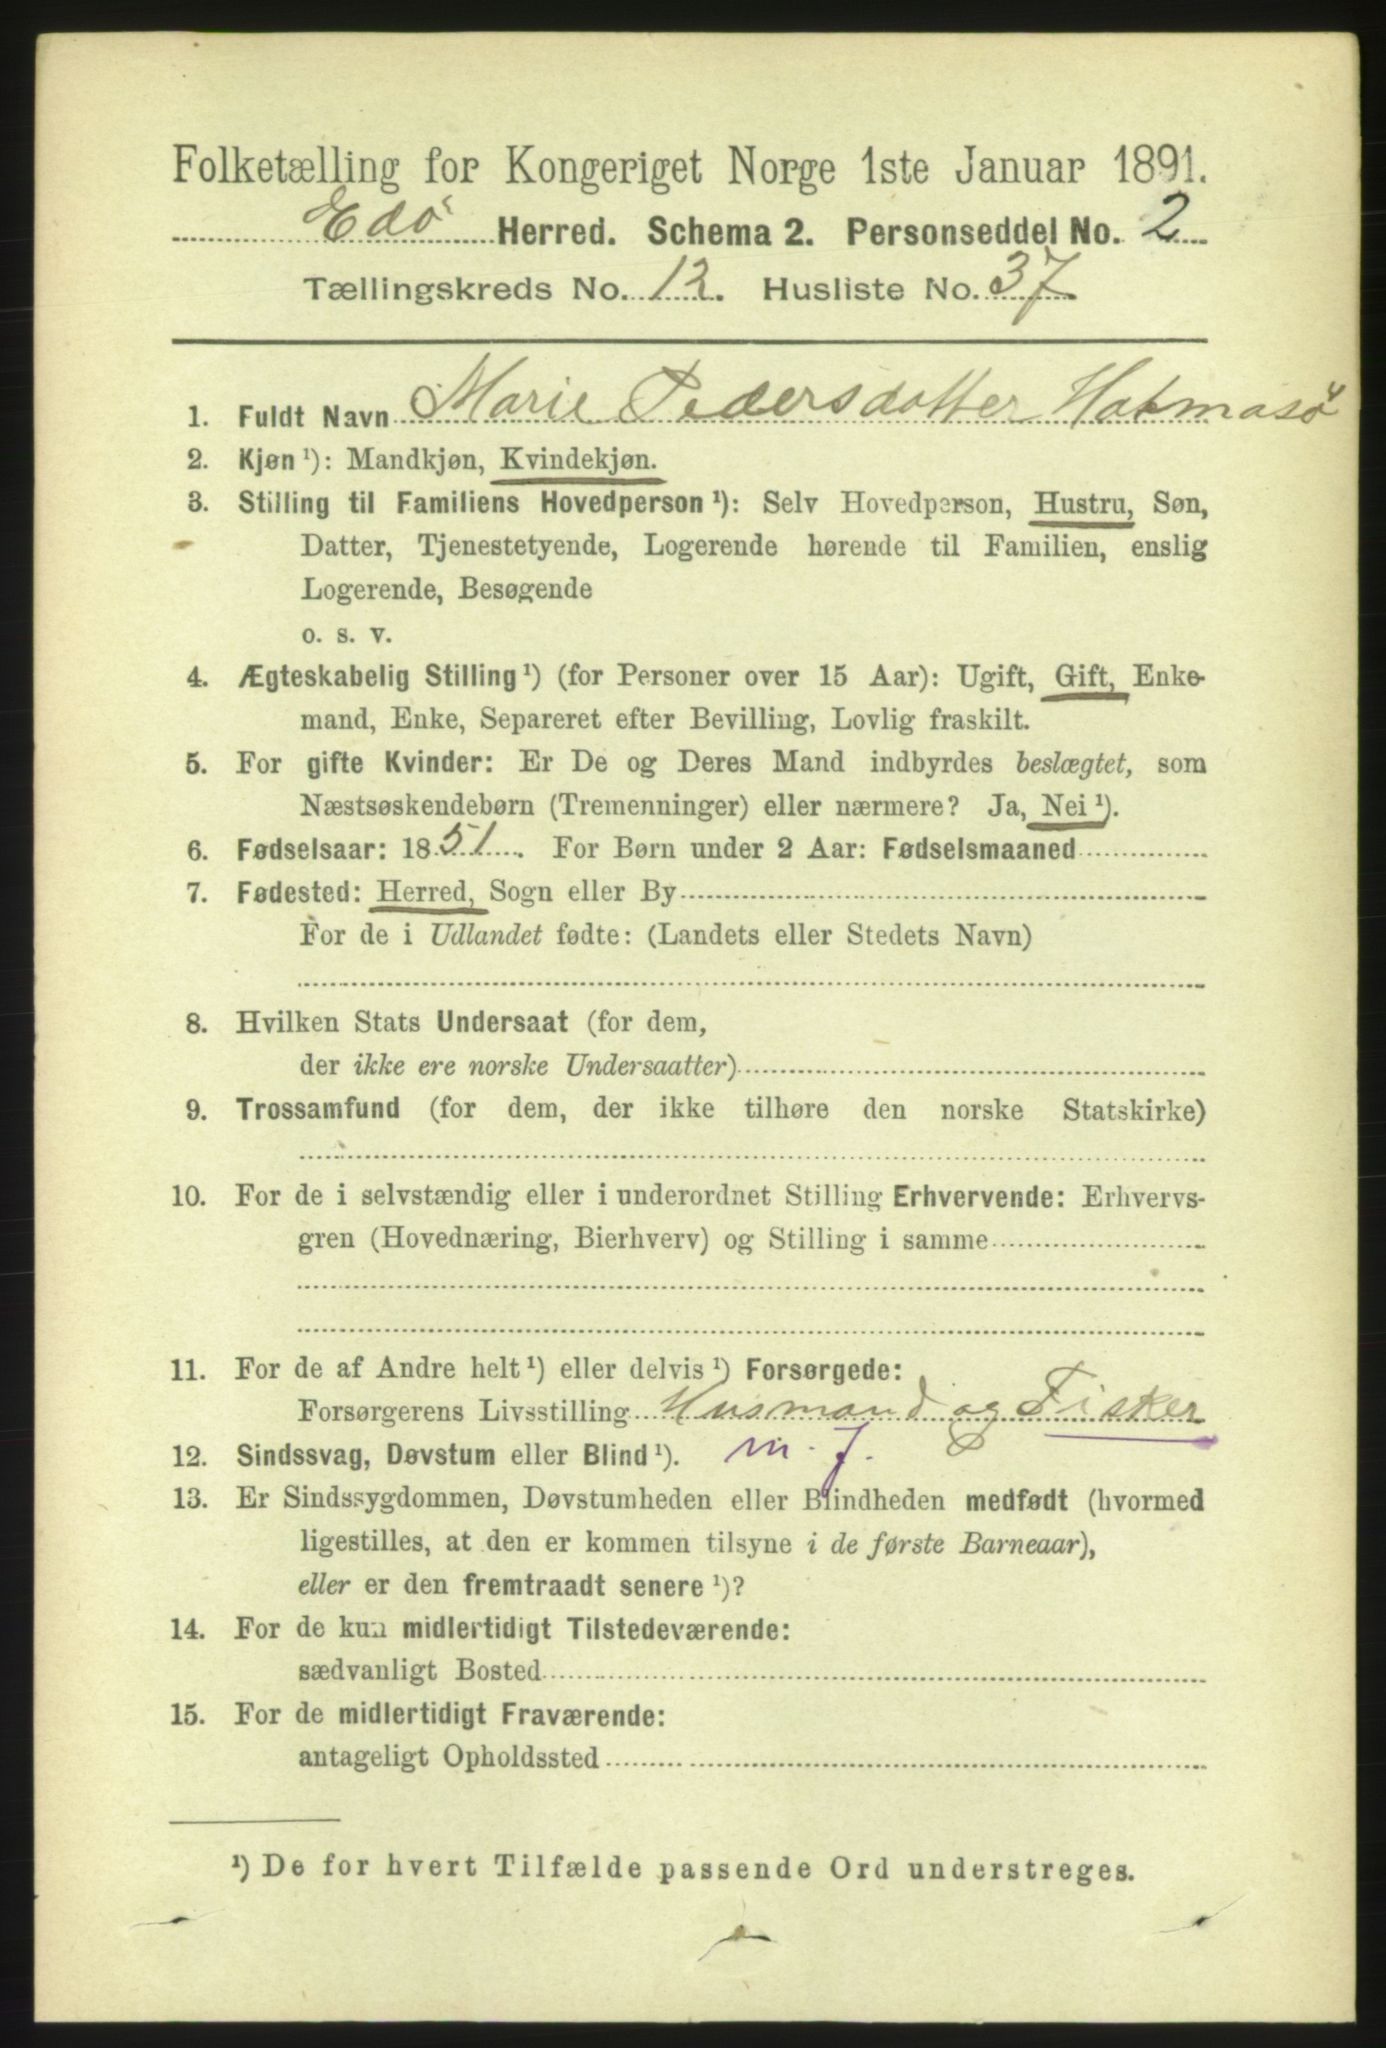 Folketælling for Kongeriget Norge 1ste Januar 1891.
Edö Herred. Schema 2. Personseddel No. 2
Tællingskreds No. 12. Husliste No. 37
1. Fuldt Navn Marie Pedersdatter Hatmasö
2. Kjøn ¹): Mandkjøn, Kvindekjøn.
3. Stilling til Familiens Hovedperson ¹): Selv Hovedperson, Hustru, Søn,
Datter, Tjenestetyende, Logerende hørende til Familien, enslig
Logerende, Besøgende
o. s. v.
4. Ægteskabelig Stilling ¹) (for Personer over 15 Aar): Ugift, Gift, Enke-
mand, Enke, Separeret efter Bevilling, Lovlig fraskilt.
5. For gifte Kvinder: Er De og Deres Mand indbyrdes beslægtet, som
Næstsøskendebørn (Tremenninger) eller nærmere? Ja, Nei ¹).
6. Fødselsaar: 1851. For Børn under 2 Aar: Fødselsmaaned
7. Fødested: Herred, Sogn eller By
For de i Udlandet fødte: (Landets eller Stedets Navn)
8. Hvilken Stats Undersaat (for dem,
der ikke ere norske Undersaatter)
9. Trossamfund (for dem, der ikke tilhøre den norske Statskirke)
10. For de i selvstændig eller i underordnet Stilling Erhvervende: Erhvervs-
gren (Hovednæring, Bierhverv) og Stilling i samme
11. For de af Andre helt ¹) eller delvis ¹) Forsørgede:
Forsørgerens Livsstilling Husmand og Fisker
12. Sindssvag, Døvstum eller Blind ¹). m. j.
13. Er Sindssygdommen, Døvstumheden eller Blindheden medfødt (hvormed
ligestilles, at den er kommen tilsyne i de første Barneaar),
eller er den fremtraadt senere ¹)?
14. For de kun midlertidigt Tilstedeværende:
sædvanligt Bosted
15. For de midlertidigt Fraværende:
antageligt Opholdssted
¹) De for hvert Tilfælde passende Ord understreges.